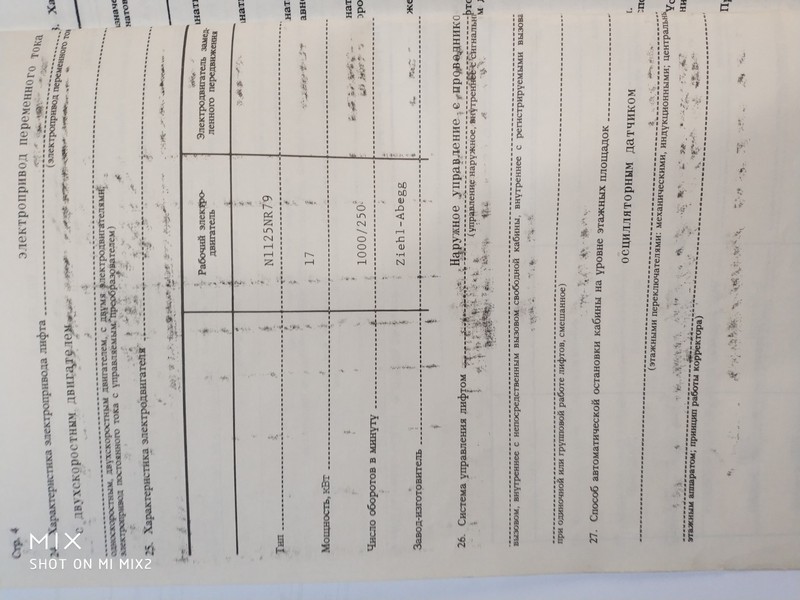 Стр. 4
24. Характеристика электропривода лифта
электропривод переменного тока
(электропривод переменного
с двухскоростным двигателем
односкоростным, двухскоростным двигателем, с двумя электродвигателями;
электропривод постоянного тока с управляемым преобразователем)
25. Характеристика электродвигателя
Рабочий электро-
двигатель
Электродвигатель замед-
ленного передвижения
Тип N1125NR79
Мощность, кВт 17
Число оборотов в минуту 1000/250
Завод-изготовитель Ziehl-Abegg
26. Система управления лифтом
Наружное управление с
(управление наружное, внутреннее с
вызовом, внутреннее с непосредственным вызовом свободной кабины, внутреннее с регистрируемыми
при одиночной или групповой работе лифтов, смешанное)
27. Способ автоматической остановки кабины на уровне этажных площадок
осцилляторным датчиком
(этажными переключателями: механическими, индукционными;
этажным аппаратом; принцип работы корректора)
MIX
SHOT ON MI MIX2